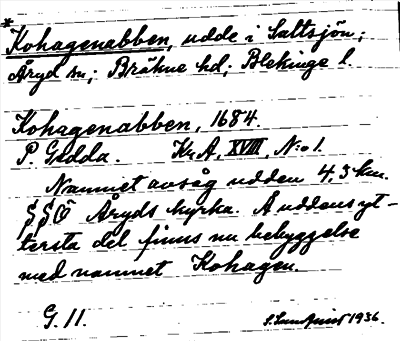 * Kohagenabben, udde i Saltsjön;
Åryd sn; Bräkne hd; Blekinge l.
Kohagenabben, 1684.
P. Gedda. Kr.A, XVIII, N:o 1.
Namnet avsåg udden 4,3 km.
SSÖ Åryds kyrka. Å uddens yt-
tersta del finns nu bebyggelse
med namnet Kohagen.
G. 11. S. Lundquist 1936.